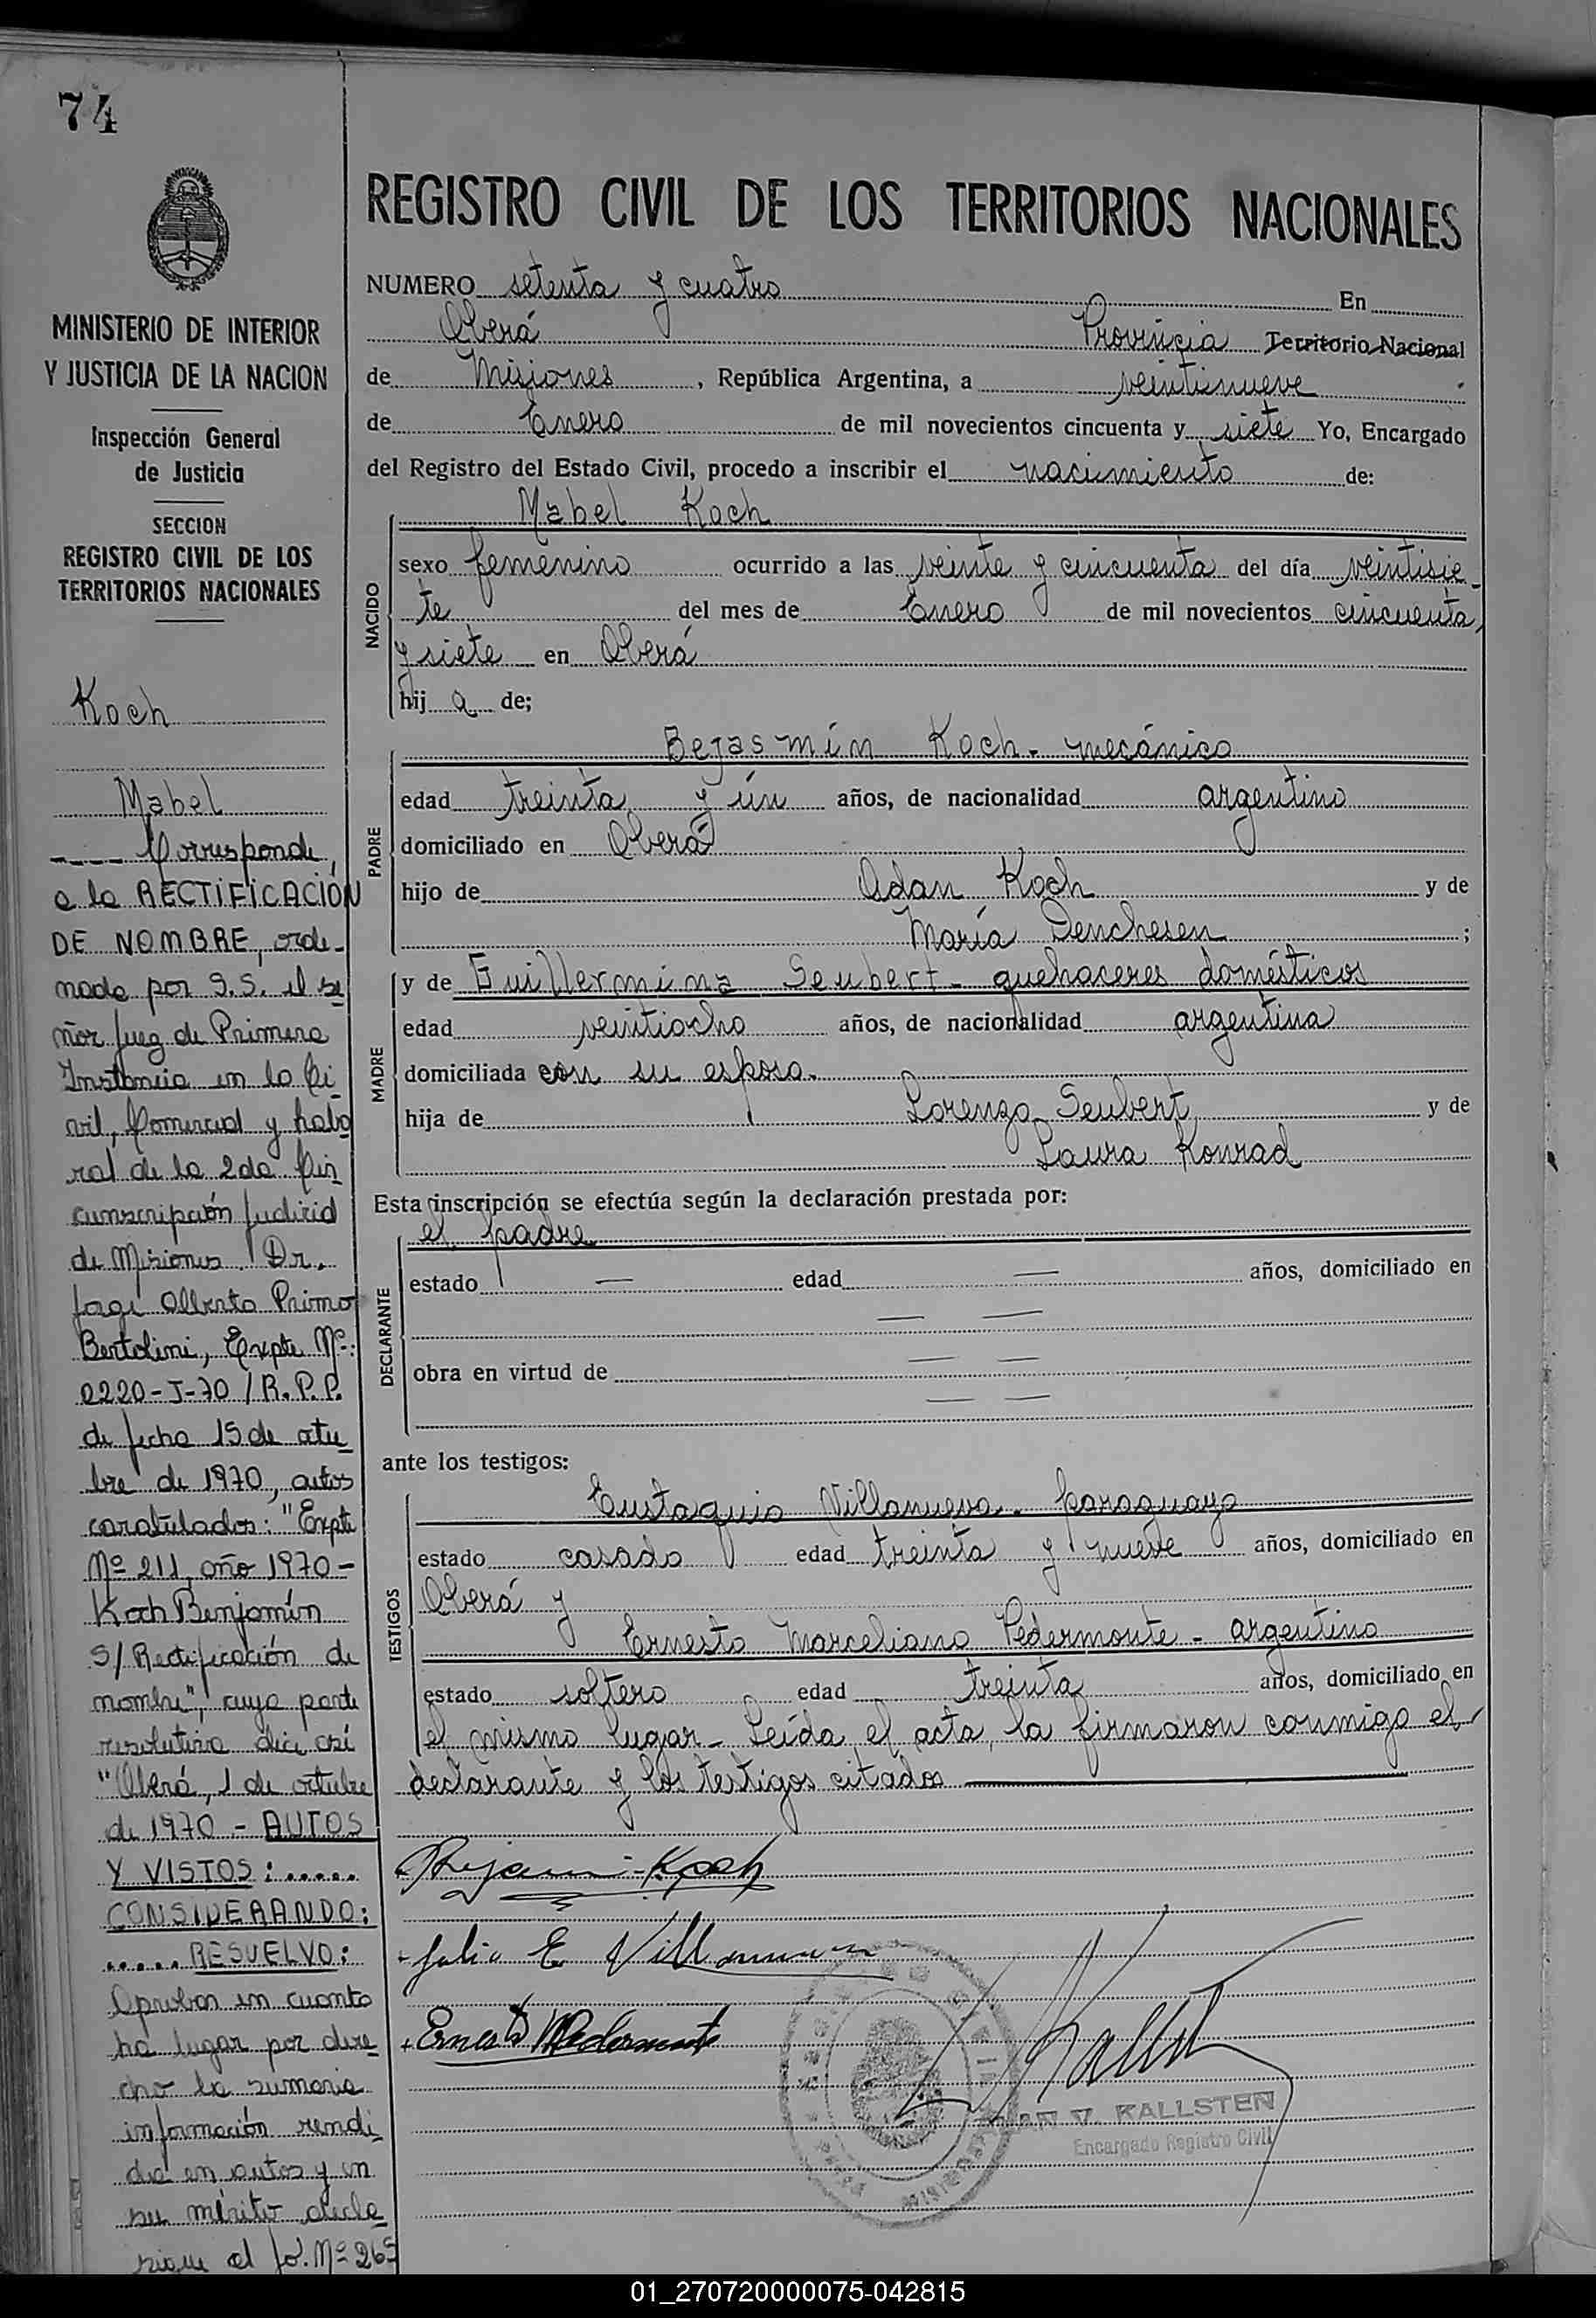 74
MINISTERIO DE INTERIOR
Y JUSTICIA DE LA NACION
Inspección General
de Justicia
SECCION
REGISTRO CIVIL DE LOS
TERRITORIOS NACIONALES
Koch
Mabel
---- Corresponde
a la RECTIFICACIÓN
DE NOMBRE, orde-
nada por S.S. el se
ñor Juez de Primera
Instancia en lo Ci
vil, Comercial y Labo
ral de la 2da Cir
cunscripción Judicial
de Misiones. Dr.
Jorge Alberto Primo
Bertolini, Expte Nº:
2220-J-70/R.P.P.
de fecha 15 de octu
bre de 1970, autos
caratulados: "Expte
Nº 211, año 1970-
Koch Benjamín
S/Rectificación de
nombre", cuya parte
resolutiva dice así
"Oberá, 1 de octubre
de 1970 - AUTOS
Y VISTOS:.....
CONSIDERANDO:
..... RESUELVO:
Aprobar en cuanto
ha lugar por dere
cho la sumaria
información rendi
da en autos y en
su mérito decla
sigue al fo. Nº 265
REGISTRO CIVIL DE LOS TERRITORIOS NACIONALES
NUMERO setenta y cuatro En
Oberá Provincia Territorio Nacional
de Misiones, República Argentina, a veintinueve
de Enero de mil novecientos cincuenta y siete Yo, Encargado
del Registro del Estado Civil, procedo a inscribir el nacimiento de:
NACIDO
Mabel Koch
sexo femenino ocurrido a las veinte y cincuenta del día veintisie-
te del mes de Enero de mil novecientos cincuenta
y siete en Oberá
hij a de;
PADRE
Bejasmín Koch - mecánico
edad treinta y ún años, de nacionalidad argentino
domiciliado en Oberá
hijo de Adan Koch y de
María Denchesen;
MADRE
y de Guillermina Seubert - quehaceres domésticos
edad veintiocho años, de nacionalidad argentina
domiciliada con su esposo.
hija de Lorenzo Seubert y de
Laura Konrad
Esta inscripción se efectúa según la declaración prestada por:
DECLARANTE
el padre
estado — edad — años, domiciliado en
— —
obra en virtud de — —
— —
ante los testigos:
TESTIGOS
Eustaquio Villanueva - paraguayo
estado casado edad treinta y nueve años, domiciliado en
Oberá y
Ernesto Marceliano Pedermonte - argentino
estado soltero edad treinta años, domiciliado en
el mismo lugar - Leída el acta, la firmaron conmigo el
declarante y los testigos citados
Koch
Julio E Villanueva
Ernesto Pedermonte
Kallsten
V. KALLSTEN
Encargado Registro Civil
01_270720000075-042815